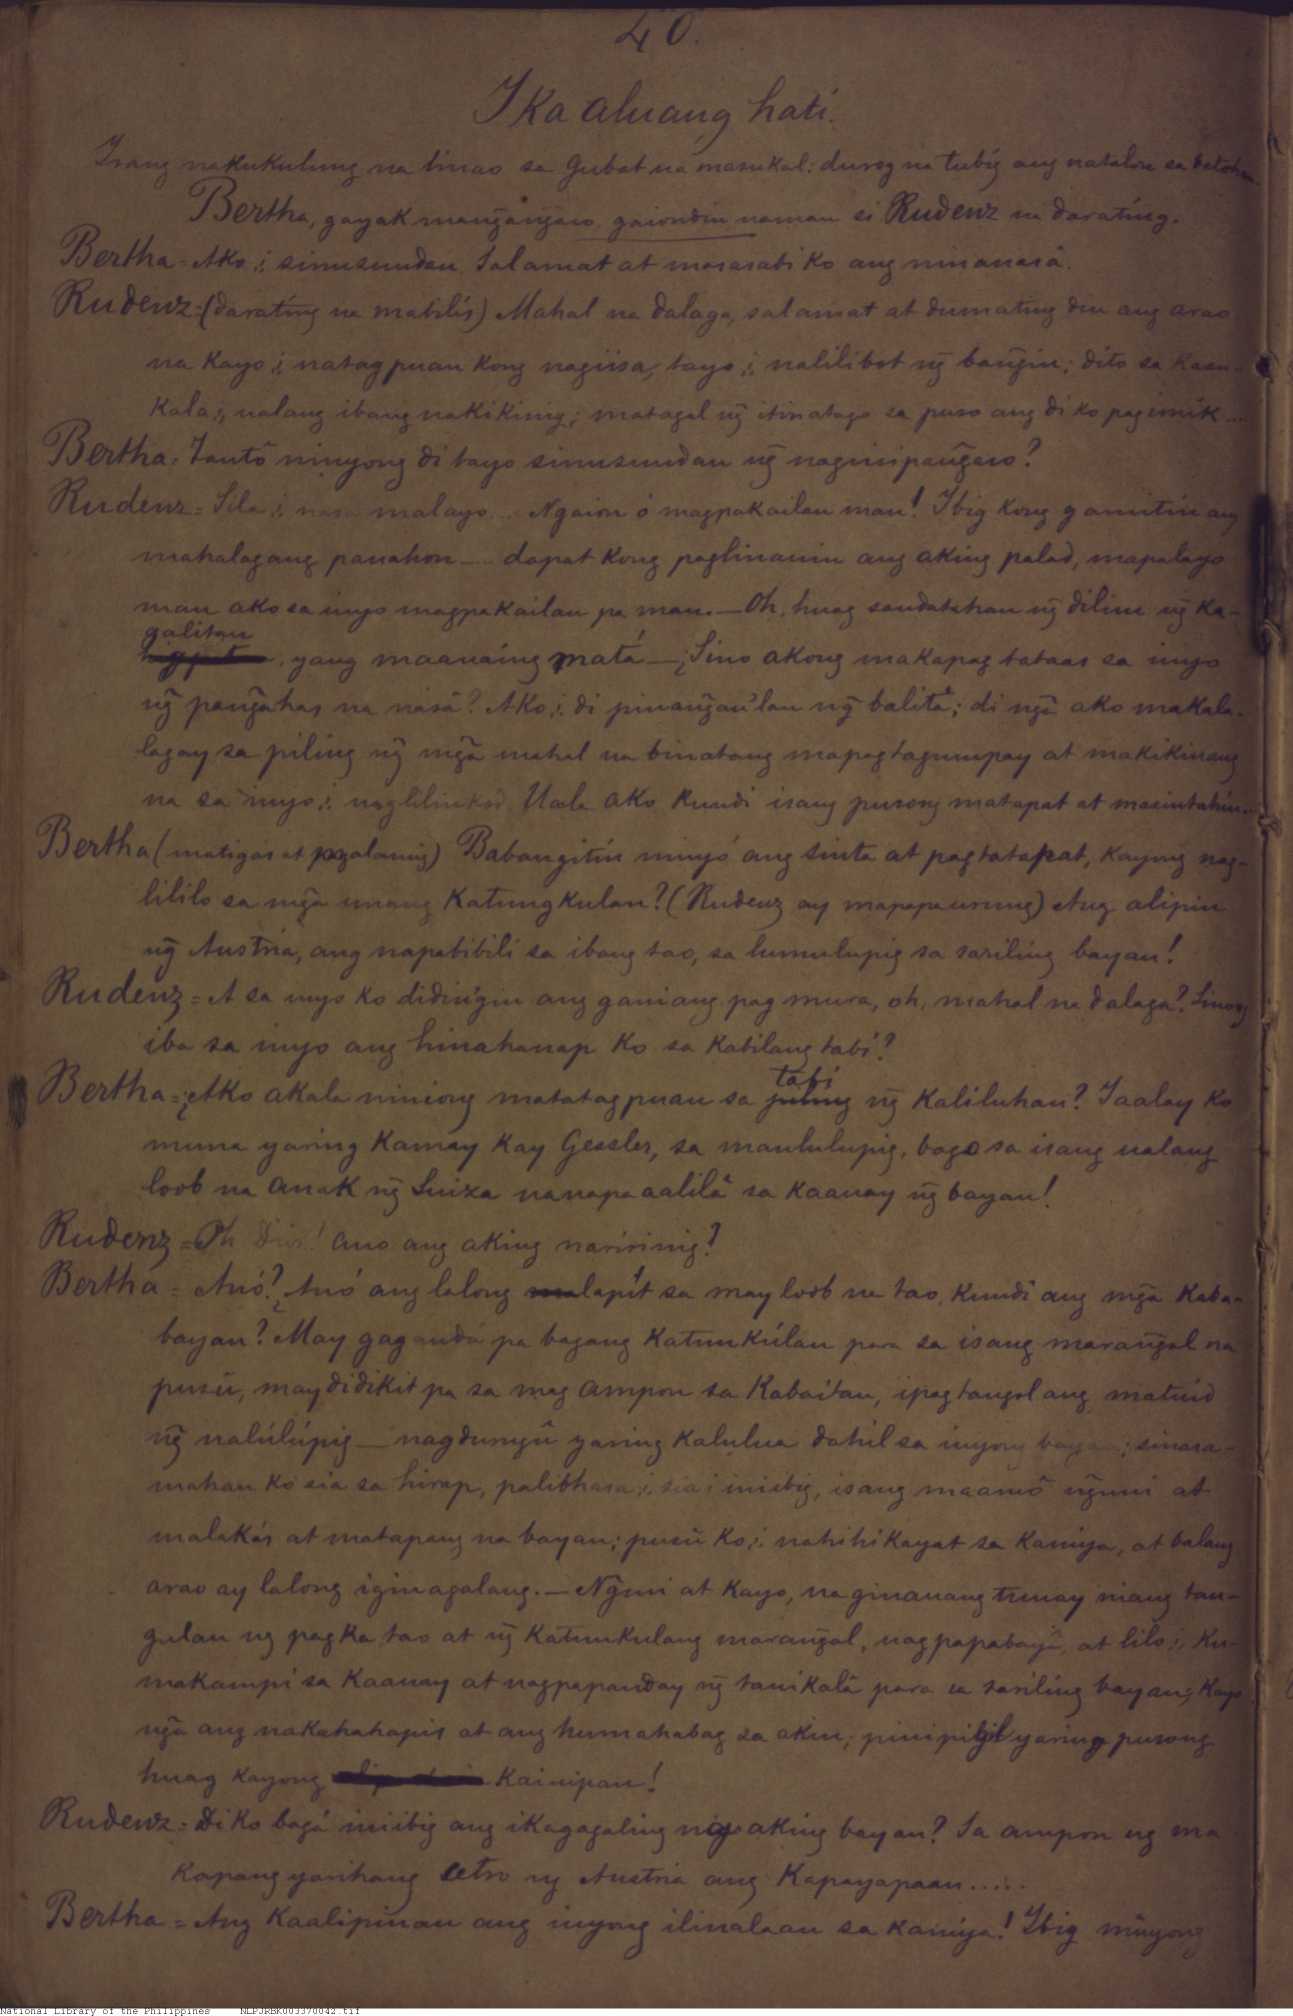 40.
Ika aluang hati.
Isang nakukulung na linao sa gubat na masukal: durog na tubig ang natalon sa batohan
Bertha, gayak mang̃ang̃aso, gaiondin naman si Rudenz na darating.
Bertha = Ako,i, sinusundan. Salamat at masasabi ko ang ninanasâ.
Rudenz = (darating na mabilis) Mahal na dalaga, salamat at dumating din ang arao
na kayo,i, natagpuan kong nagiisa, tayo,i, nalilibot ng̃ bang̃in; dito sa kasu-
kala,i, ualang ibang nakikinig; matagal ng̃ itinatago sa puso ang di ko pagimik ....
Bertha. Tantô ninyong di tayo sinusundan ng̃ nagsisipang̃aso?
Rudenz = Sila,i, nasa malayo... Ngaion ó magpakailan man! Ibig kong gamitin ang
mahalagang panahon — dapat kong paglinauin ang aking palad, mapalayo
man ako sa inyo magpakailan pa man. — Oh, huag sandatahan ng̃ dilim ng̃ ka-
galitan
yang maauaing matá — ¿Sino akong makapagtataas sa inyo
ng̃ pang̃ahas na nasâ? Ako,i, di pinang̃au'lan ng̃ balitâ; di ng̃a ako makala-
lagay sa piling ng̃ mg̃a mahal na binatang mapagtagumpay at makikinang
na sa inyo,i, naglilinkod. Uala ako kundi isang pusong matapat at masintahin...
Bertha (matigas at malamig) Babangitin ninyó ang sinta at pagtatapat, kayong nag-
lililo sa mg̃a unang katungkulan? (Rudenz ay mapapaurung) Ang alipin
ng̃ Austria, ang napabibili sa ibang tao, sa lumulupig sa sariling bayan!
Rudenz = A sa inyo ko didingin ang ganiang pag mura, oh, mahal na dalaga? Sinong
iba sa inyo ang hinahanap ko sa kabilang tabi?
Bertha = ¿Ako akala niniong matatagpuan sa tabi
piling ng̃ kaliluhan? Iaalay ko
muna yaring kamay kay Gessler, sa manlulupig, bago sa isang ualang
loob na anak ng̃ Suiza na napaaalilâ sa kaauay ng̃ bayan!
Rudenz = Oh Dios! ano ang aking naririnig?
Bertha = Anó? ¿Anó ang lalong malapít sa may loob na tao, kundi ang mg̃a kaba-
bayan? May gagandá pa bagang katunkúlan para sa isang marang̃al na
pusú, may didikit pa sa mag ampon sa kabaitan, ipagtangol ang matuid
ng̃ nalúlúpig — nagdurugû yaring kalulua dahil sa inyong bayan; sinasa-
mahan ko sia sa hirap, palibhasa,i, sia,i iniibig, isang maamô ng̃uni at
malakás at matapang na bayan; pusú ko,i, nahihikayat sa kaniya, at balang
arao ay lalong iginagalang. — Ng̃uni at kayo, na ginauang tunay niang tan-
gulan ng pagka tao at ng̃ katunkulang marang̃al, nagpapabayâ, at lilo,i, ku-
makampi sa kaauay at nagpapanday ng̃ tanikalâ para sa sariling bayan; kayo
ng̃a ang nakahahapis at ang humahabag sa akin; pinipigil yaring pusong
huag kayong kainipan!
Rudenz = Di ko bagá iniibig ang ikagagaling ng̃ aking bayan? Sa ampon ng ma
kapangyarihang cetro ng Austria ang kapayapaan.....
Bertha = Ang kaalipinan ang inyong ilinalaan sa kaniya! Ibig ninyong
National Library of the Philippines NLPJRBK003370042.tif